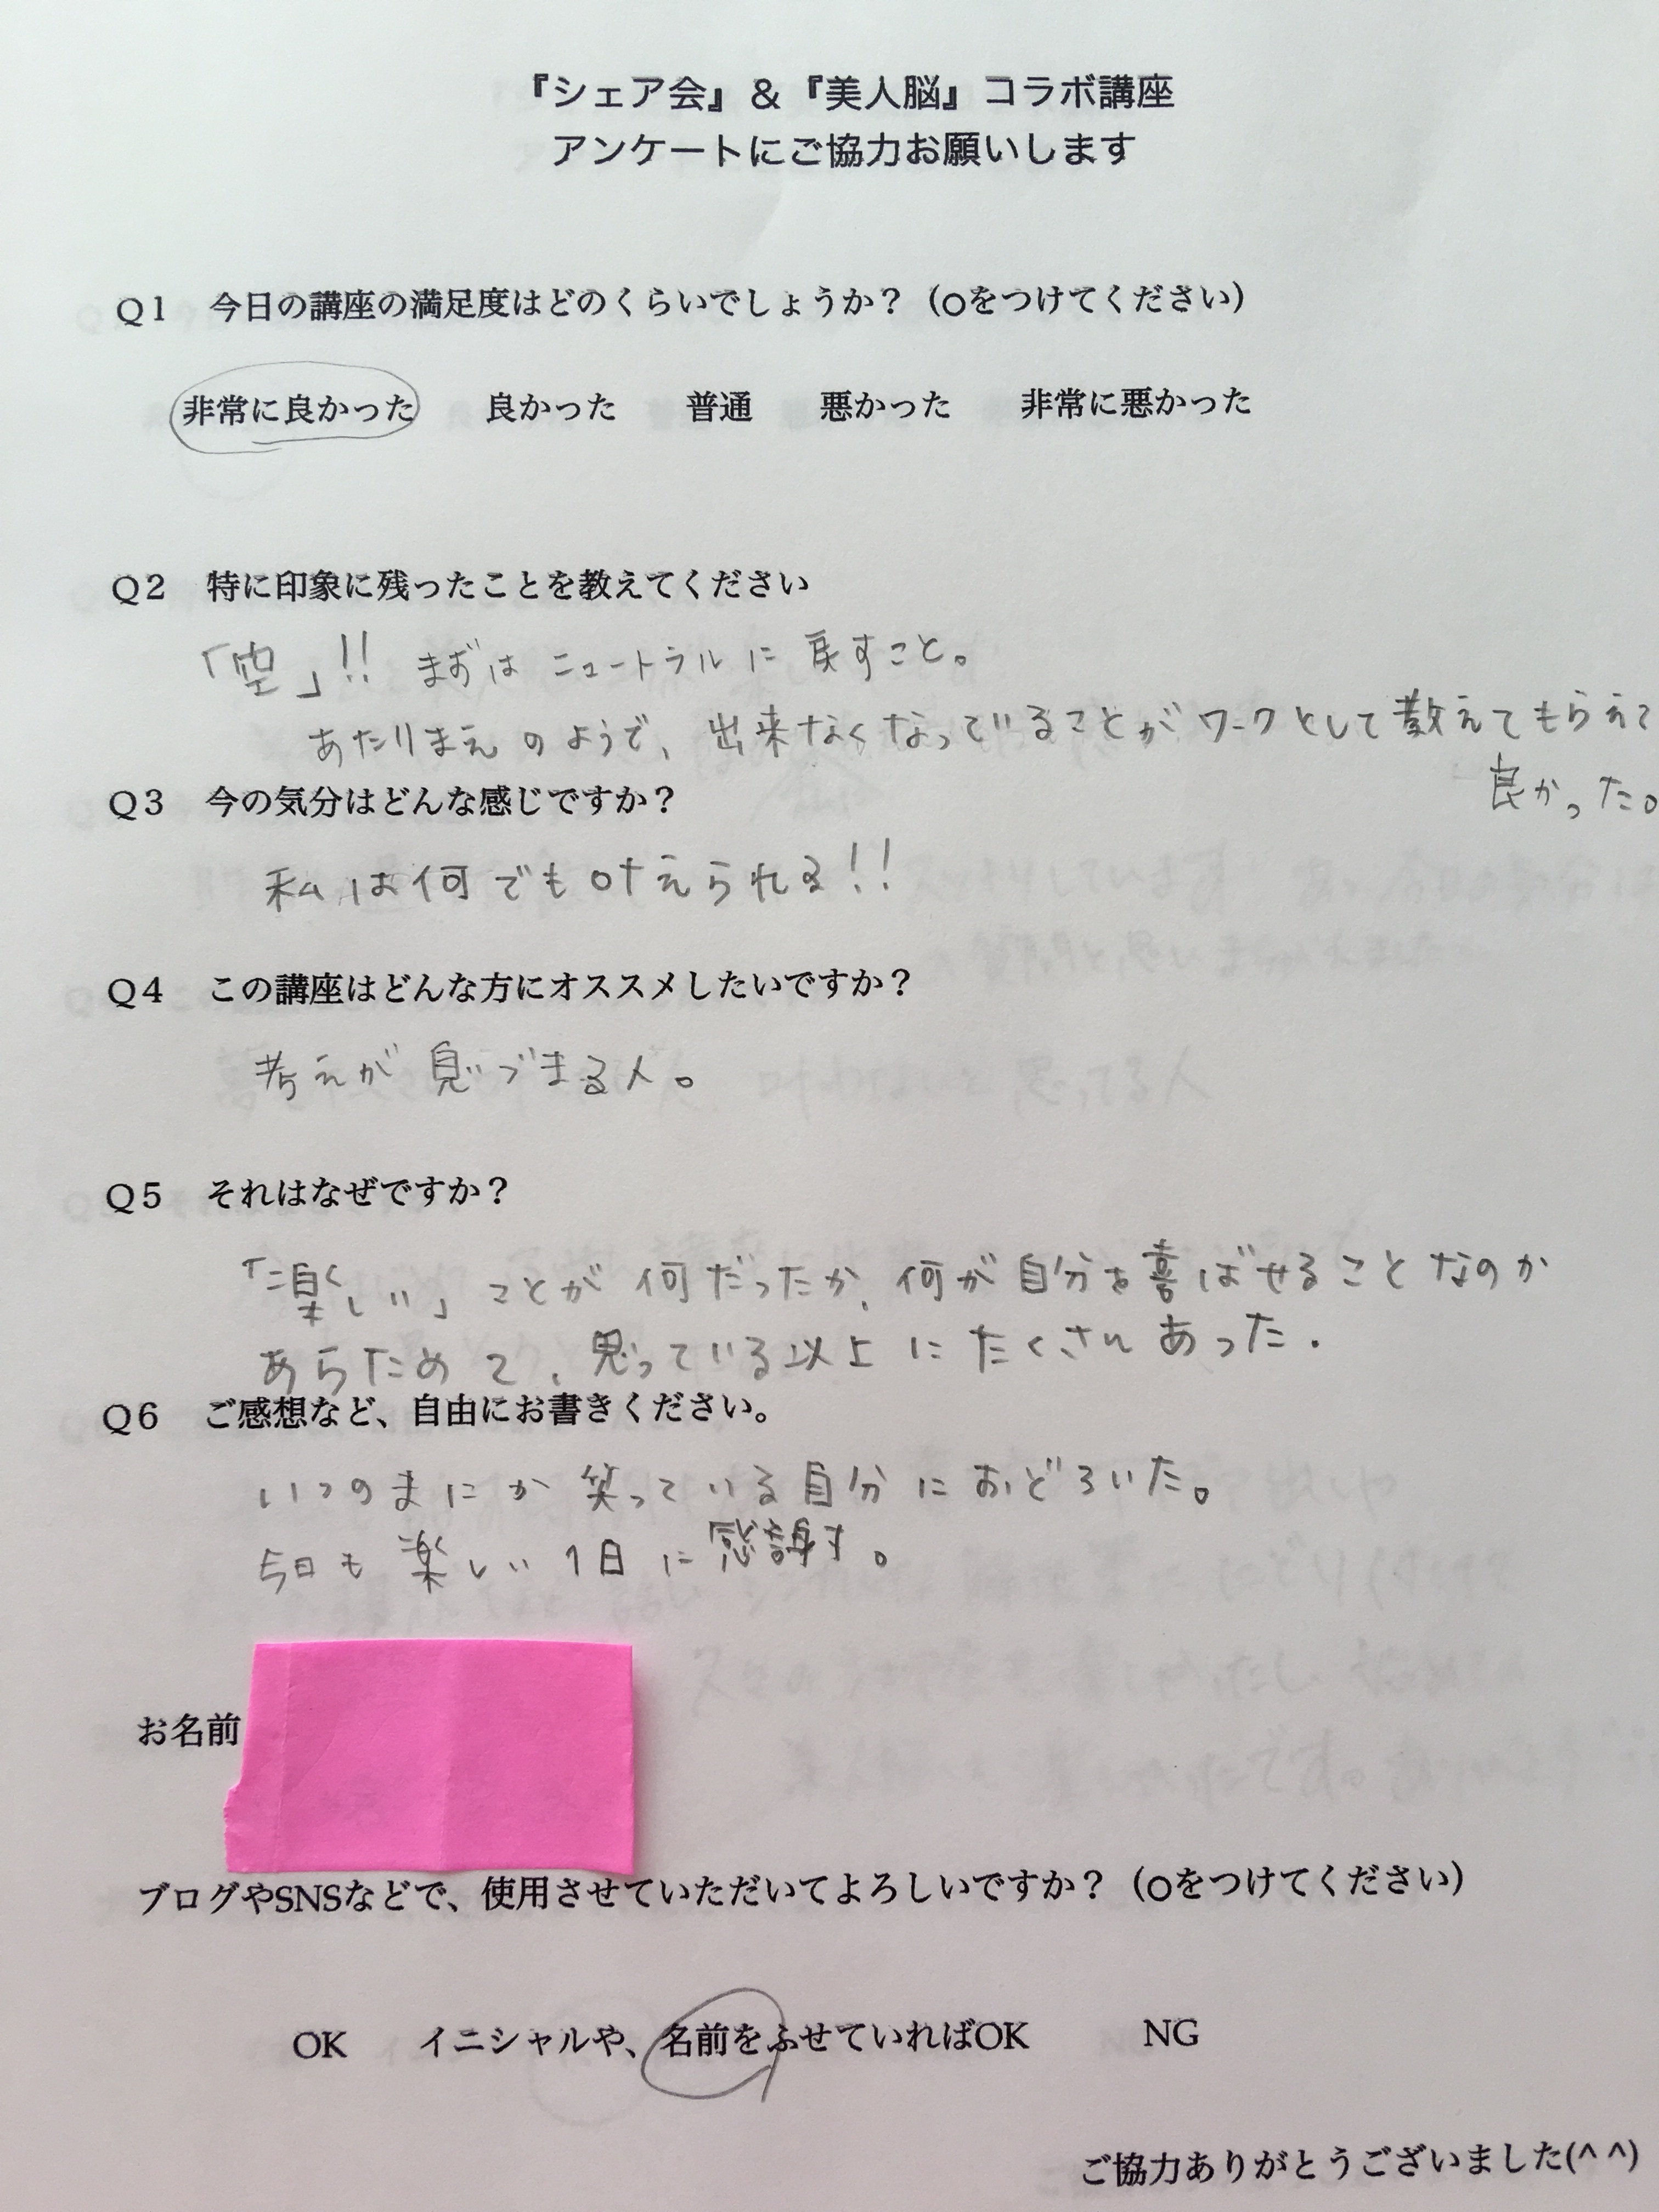 『シェア会』＆『美人脳』コラボ講座
アンケートにご協力お願いします
Q1 今日の講座の満足度はどのくらいでしょうか？（○をつけてください）
非常に良かった 良かった 普通 悪かった 非常に悪かった
Q2 特に印象に残ったことを教えてください
「空」!! まずは ニュートラルに 戻すこと。
あたりまえのようで、出来なくなっていることがワークとして教えてもらえて
良かった。
Q3 今の気分はどんな感じですか？
私は何でも叶えられる!!
Q4 この講座はどんな方にオススメしたいですか？
考えが 息づまる人。
Q5 それはなぜですか？
「楽しい」ことが何だったか、何が自分を喜ばせることなのか
あらためて、思っている以上にたくさんあった.
Q6 ご感想など、自由にお書きください。
いつのまにか笑っている自分におどろいた。
今日も楽しい1日に感謝す。
お名前
ブログやSNSなどで、使用させていただいてよろしいですか？（○をつけてください）
OK イニシャルや、名前をふせていればOK NG
ご協力ありがとうございました(^ ^)